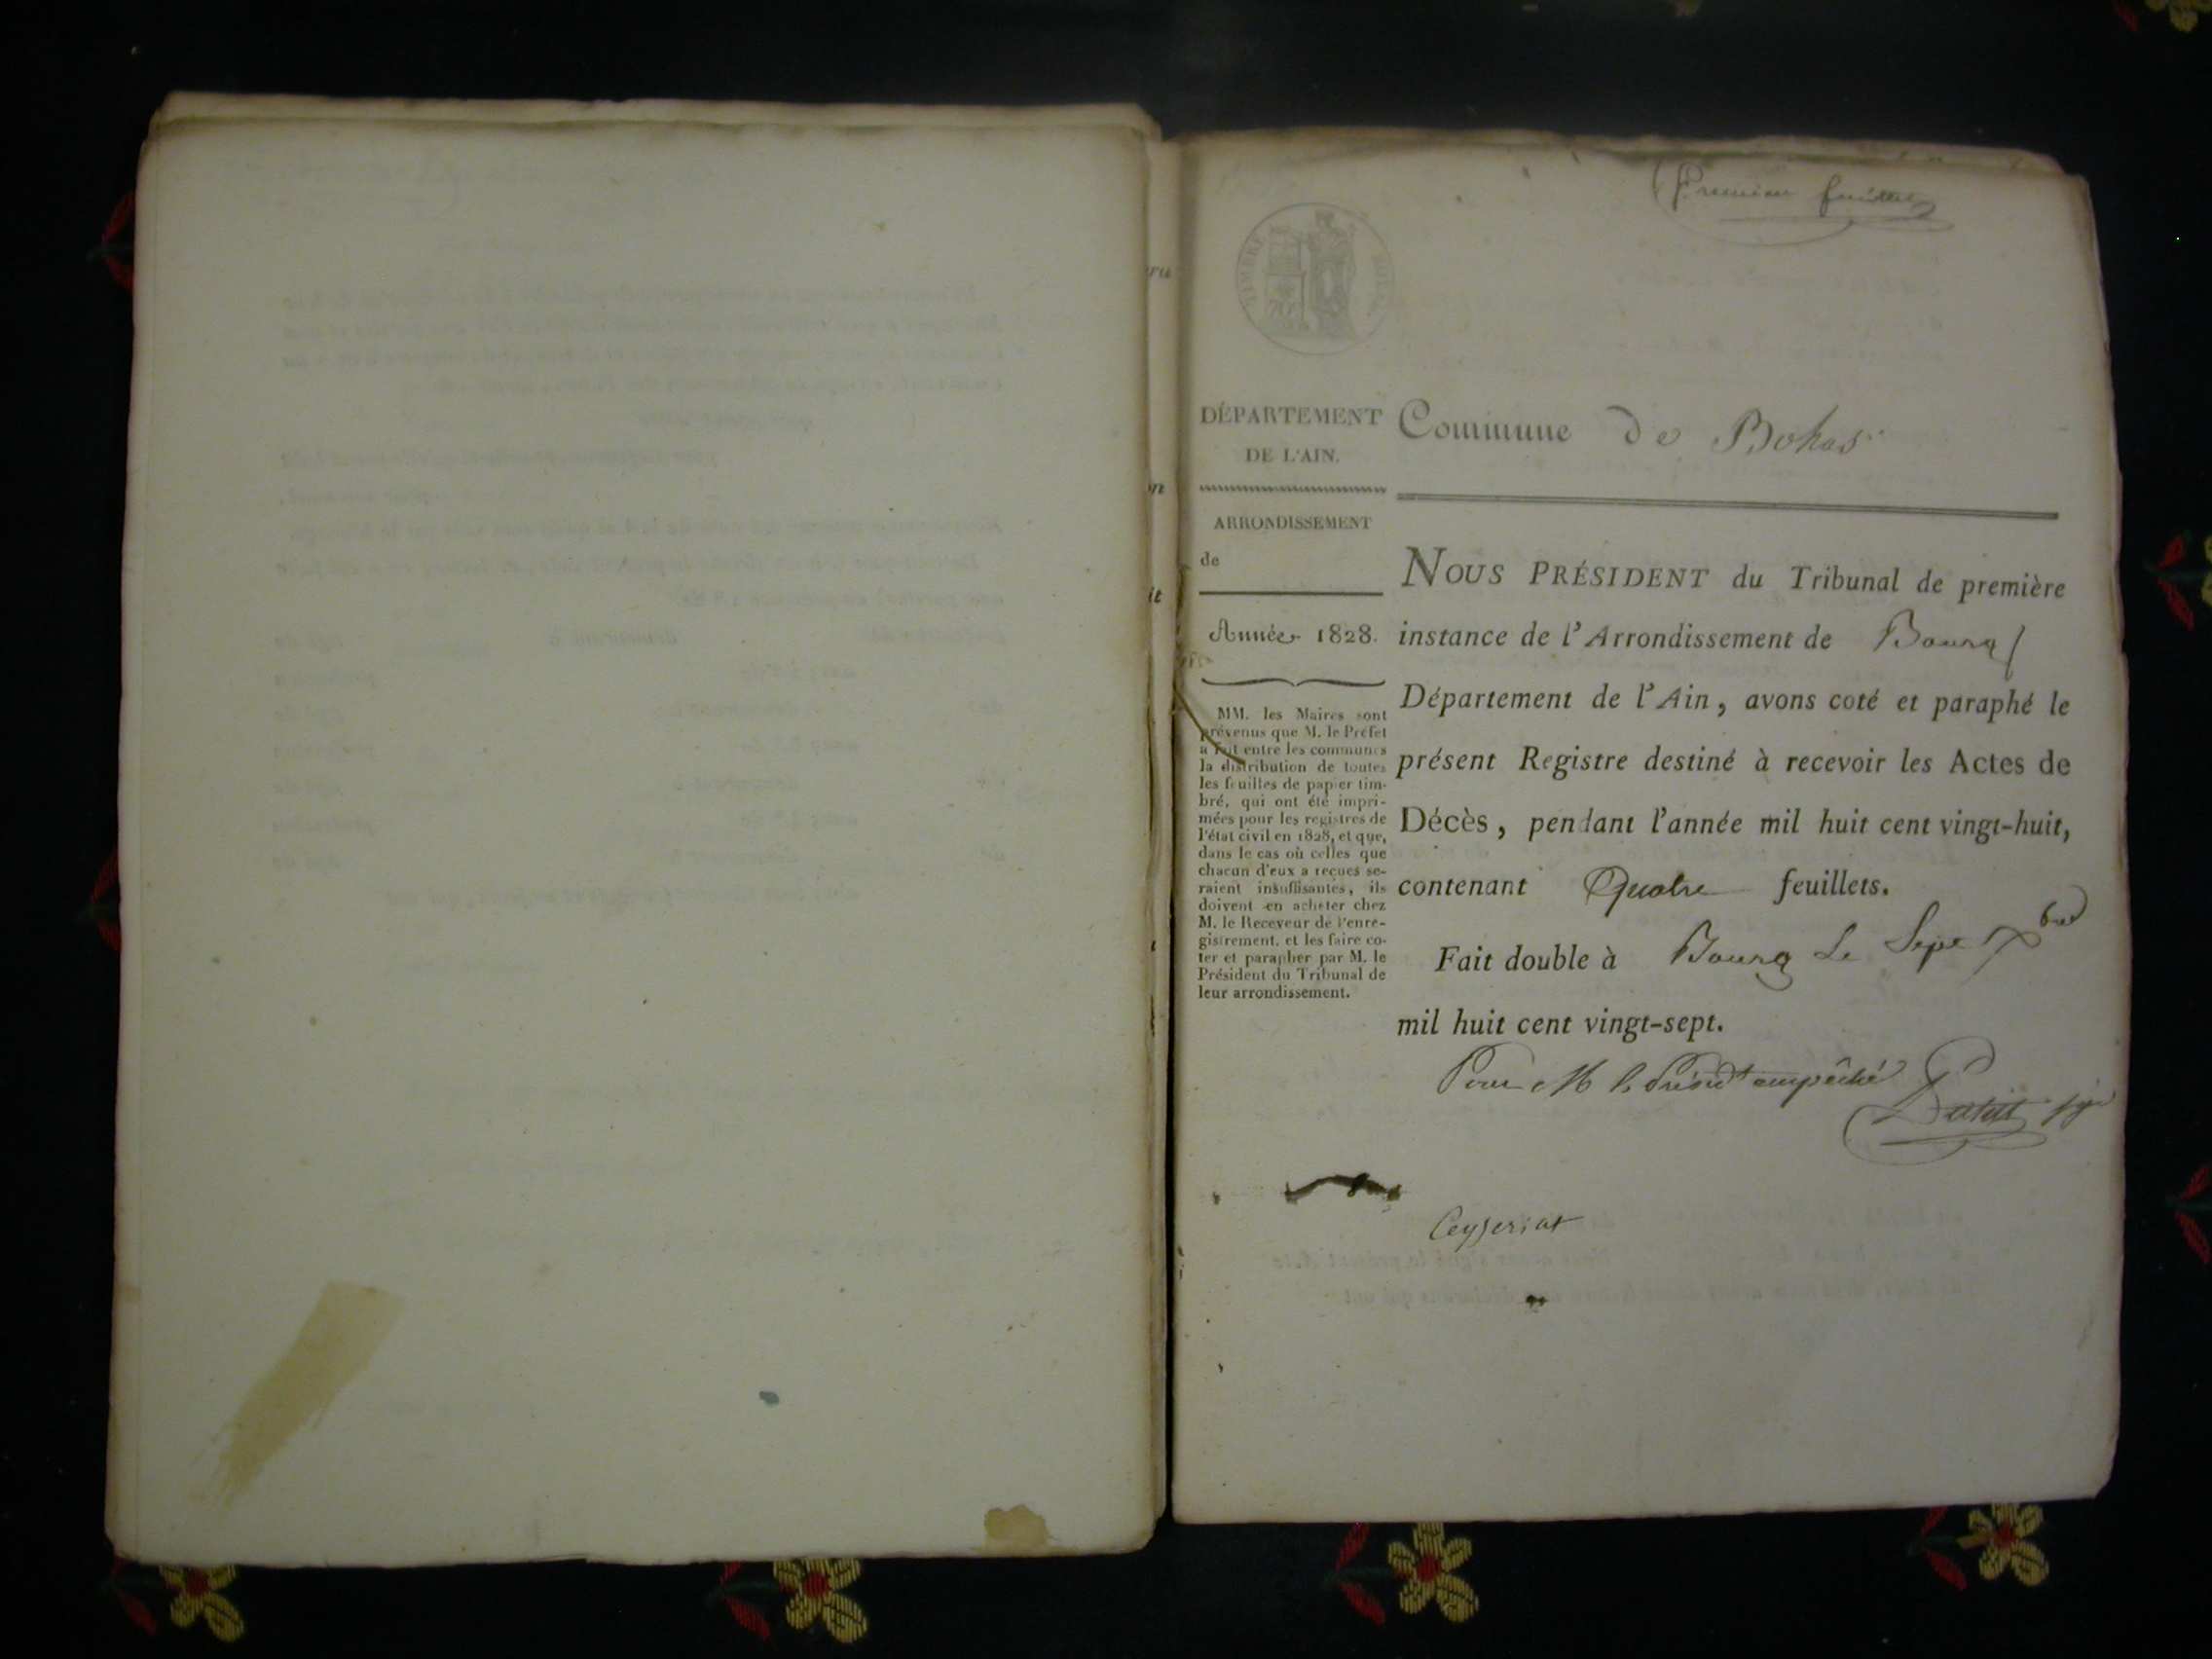 Premier feuillet
TIMBRE ROYAL
DÉPARTEMENT
DE L'AIN.
ARRONDISSEMENT
de
Année 1828.
MM. les Maires sont
prévenus que M. le Préfet
a fait entre les communes
la distribution de toutes
les feuilles de papier tim-
bré, qui ont été impri-
mées pour les registres de
l'état civil en 1828, et que,
dans le cas où celles que
chacun d'eux a reçues se-
raient insuffisantes, ils
doivent en acheter chez
M. le Receveur de l'enre-
gistrement, et les faire co-
ter et parapher par M. le
Président du Tribunal de
leur arrondissement.
Commune de Bohas
NOUS PRÉSIDENT du Tribunal de première
instance de l'Arrondissement de Bourg
Département de l'Ain, avons coté et paraphé le
présent Registre destiné à recevoir les Actes de
Décès, pendant l'année mil huit cent vingt-huit,
contenant Quatre feuillets.
Fait double à Bourg Le Sept Xbre
mil huit cent vingt-sept.
Pour M le Présidt empêché
Ceyseriat